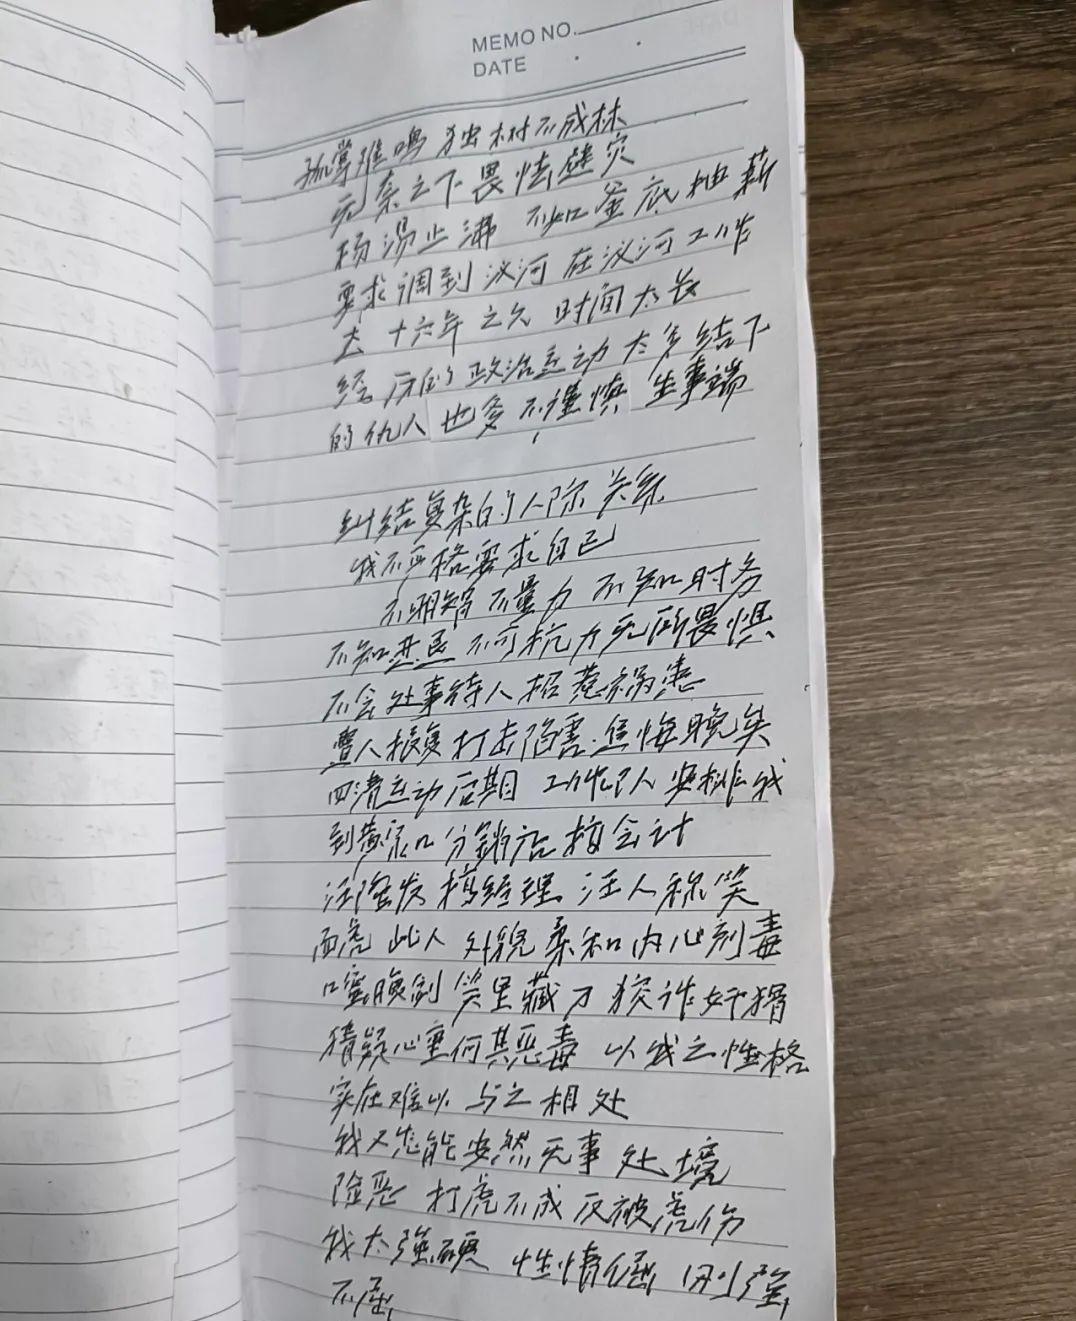 MEMO NO.
DATE
孤掌难鸣 独树不成林
无奈之下畏怯避灾
扬汤止沸 不如釜底抽薪
要求调到汊河 在汊河工作
去十六年之久 时间太长
经历的政治运动太多结下
的仇人也多不谨慎 生事端
纠结复杂的人际关系
我不严格要求自己
不明智不量力 不知时务
不知进退 不可抗力无所畏惧
不会处事待人招惹祸患
遭人报复打击陷害.焦悔晚矣
四清运动后期 工作人安排我
到黄泥口分销店搞会计
汪隆发搞经理 汪人称笑
面虎 此人 外貌柔和内心刻毒
口蜜腹剑 笑里藏刀 狡诈奸猾
猜疑心重何其恶毒 以我之性格
实在难以 与之相处
我又怎能安然无事 处境
险恶 打虎不成反被虎伤
我太强硬 性情倔 刚强
不屈